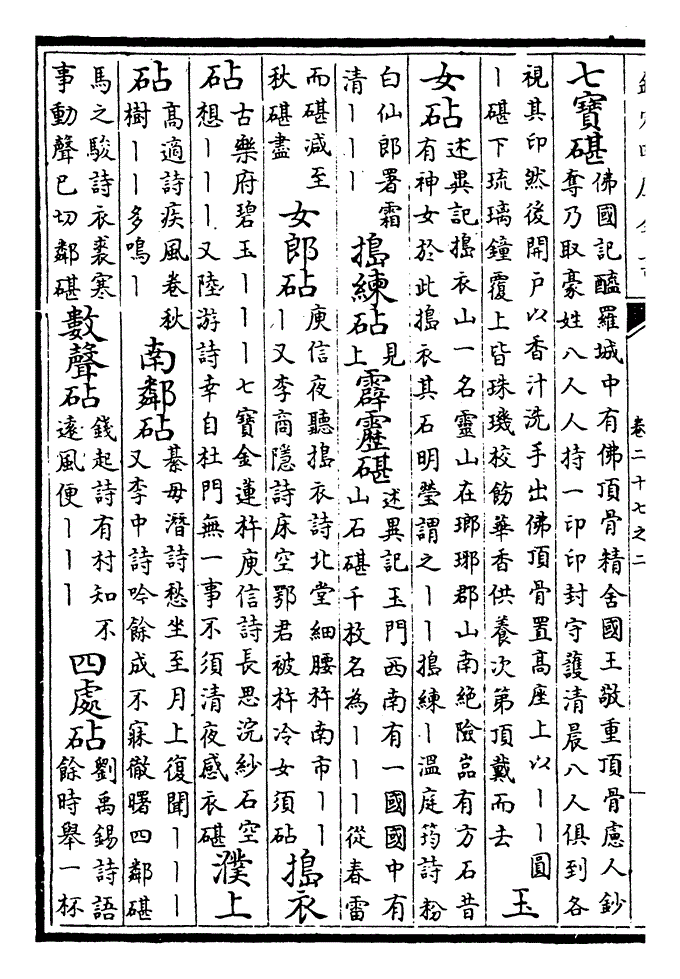 卷二十七之二
七寶碪
佛國記醯羅城中有佛頂骨精舍國王敬重頂骨慮人鈔
奪乃取豪姓八人人持一印印封守護清晨八人俱到各
視其印然後開戶以香汁洗手出佛頂骨置高座上以丨丨圓
丨碪下琉璃鐘覆上皆珠璣校飾華香供養次第頂戴而去
玉
女砧
述異記搗衣山一名靈山在瑯琊郡山南絕險嵓有方石昔
有神女於此搗衣其石明瑩謂之丨丨搗練丨溫庭筠詩粉
白仙郎署霜
清丨丨丨
搗練砧
見
上
霹靂碪
述異記玉門西南有一國國中有
山石碪千枚名為丨丨丨從春雷
而碪減至
秋碪盡
女郎砧
庾信夜聽搗衣詩北堂細腰杵南市丨丨
丨又李商隱詩床空鄂君被杵冷女須砧
搗衣
砧
古樂府碧玉丨丨丨七寶金蓮杵庾信詩長思浣紗石空
想丨丨丨又陸游詩幸自杜門無一事不須清夜感衣碪
濮上
砧
高適詩疾風卷秋
樹丨丨多鳴丨
南鄰砧
綦毋潛詩愁坐至月上復聞丨丨丨
又李中詩吟餘成不寐徹曙四鄰碪
馬之駿詩衣裘寒
事動聲已切鄰碪
數聲砧
錢起詩有村知不
遠風便丨丨丨
四處砧
劉禹錫詩語
餘時舉一杯